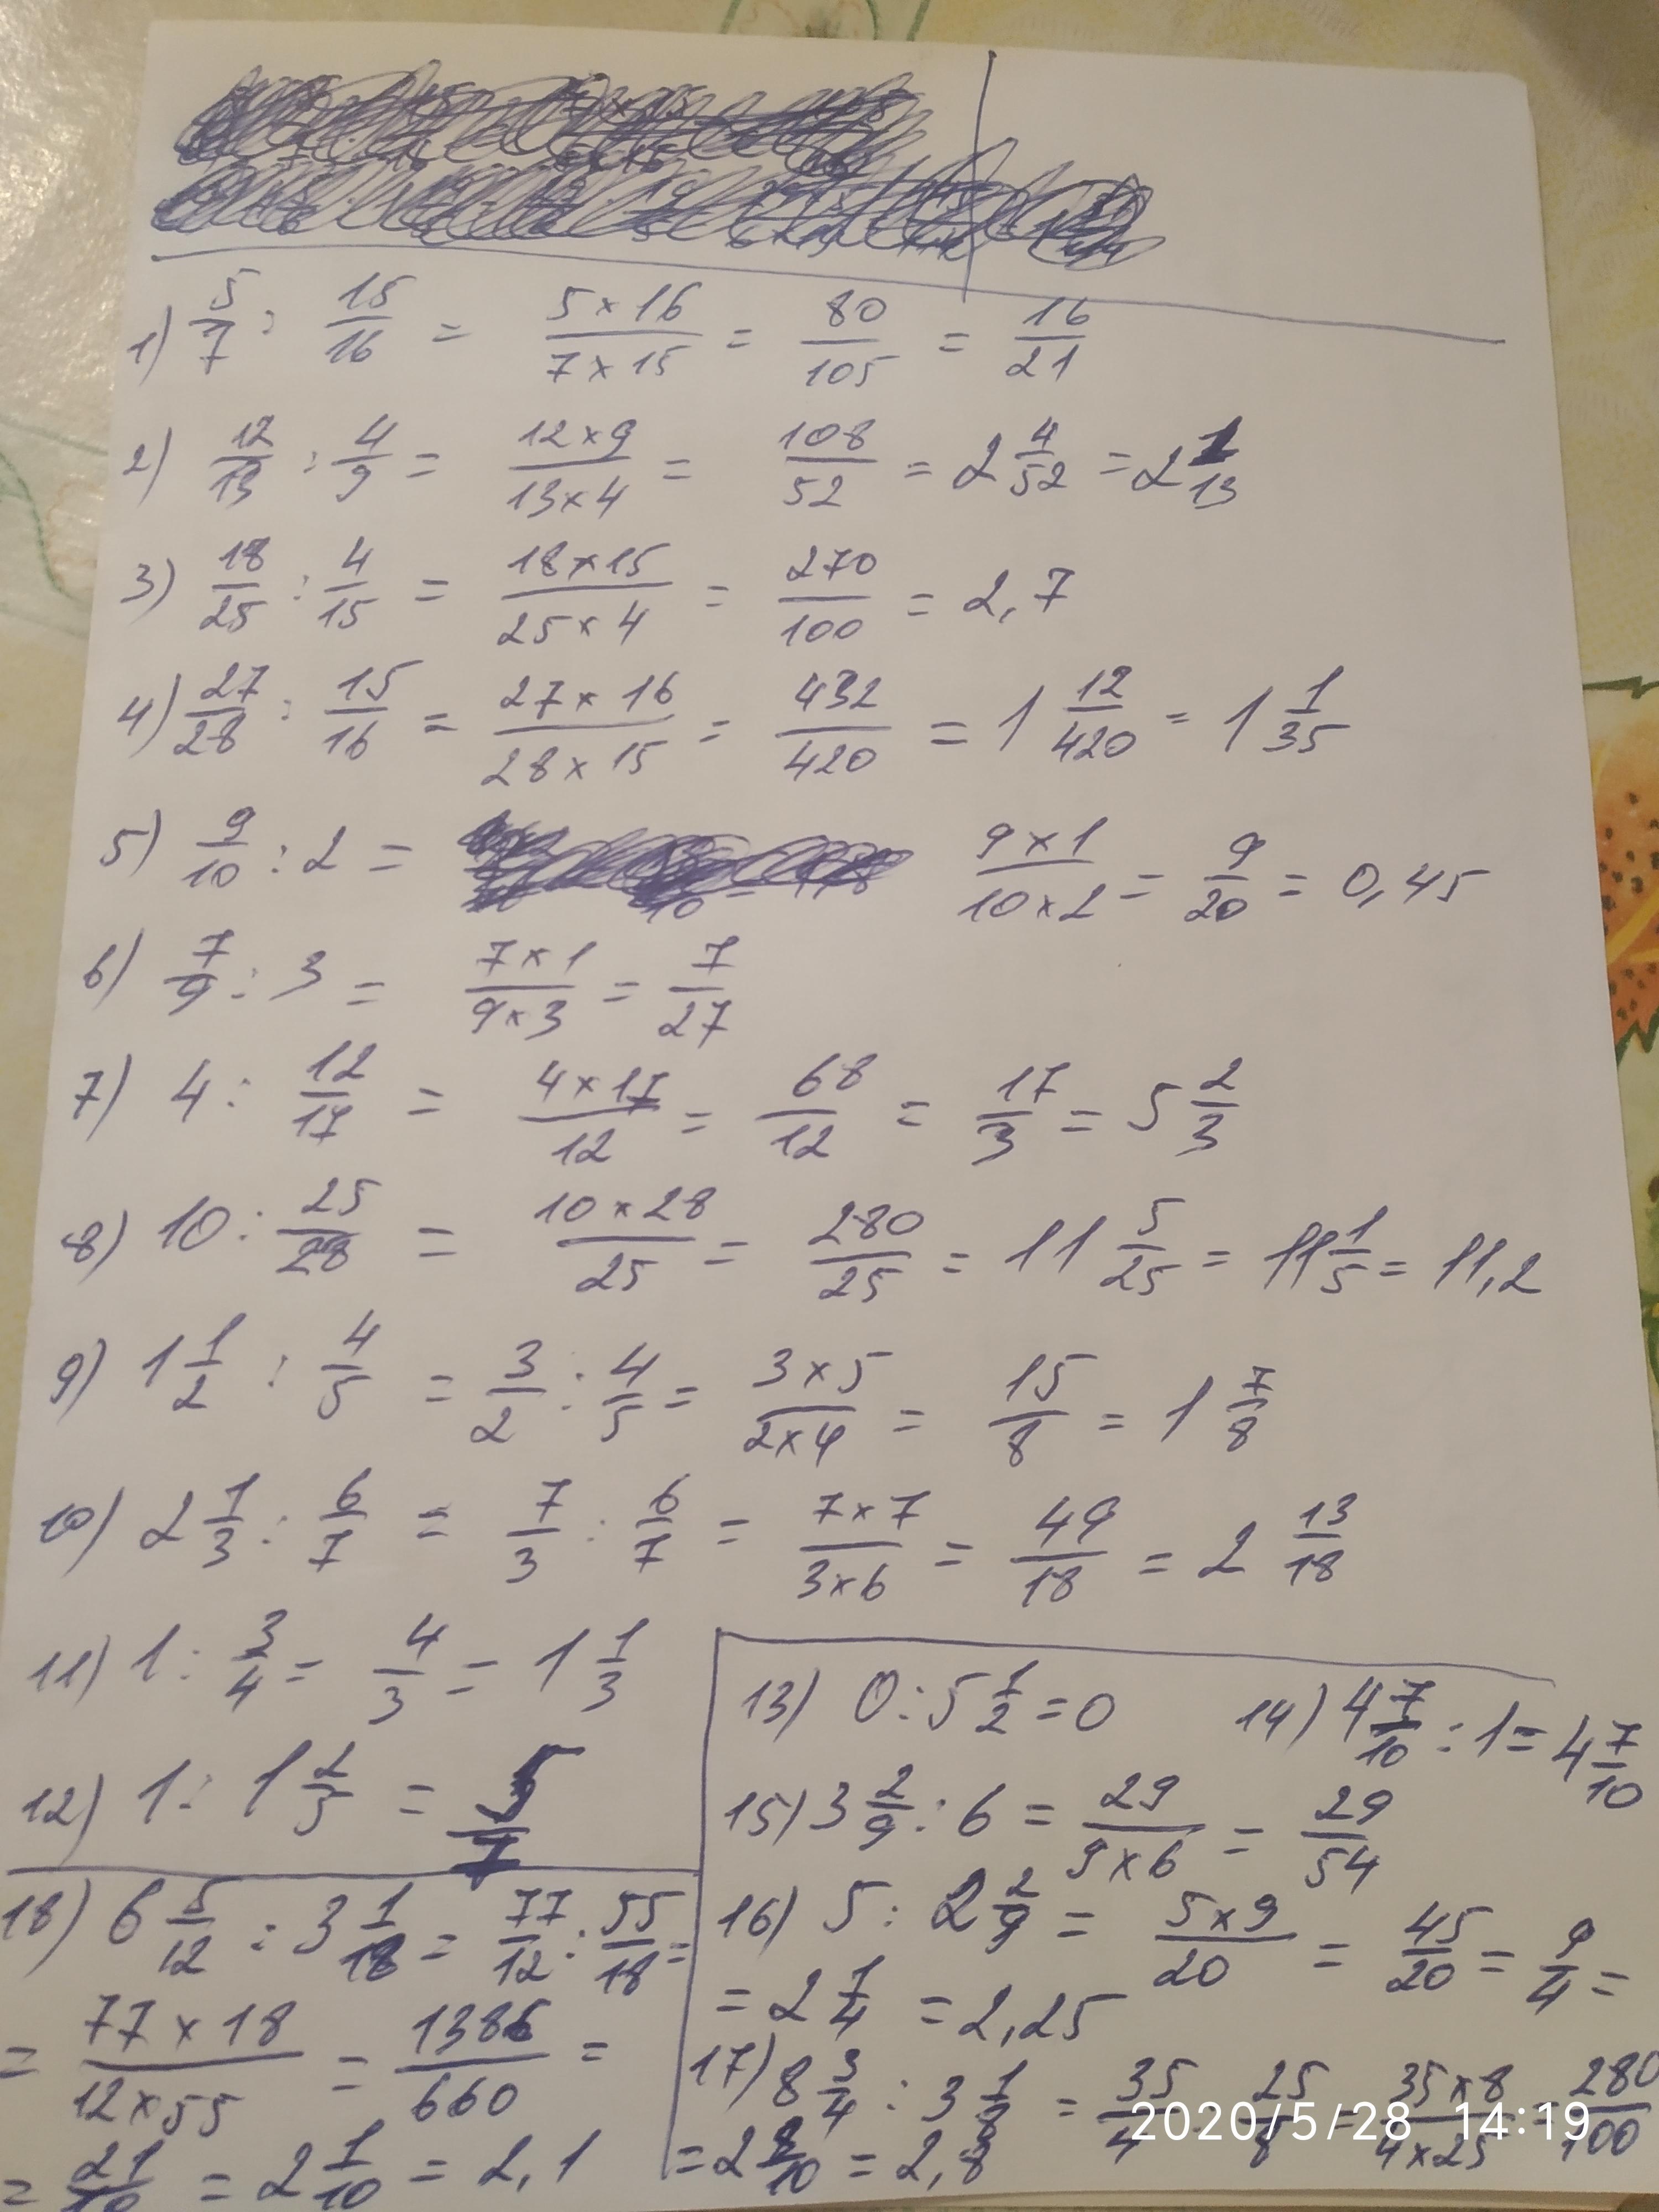 1) 5/7 : 15/16 = 5×16/7×15 = 80/105 = 16/21
2) 12/13 : 4/9 = 12×9/13×4 = 108/52 = 2 4/52 = 2 1/13
3) 18/25 : 4/15 = 18×15/25×4 = 270/100 = 2,7
4) 27/28 : 15/16 = 27×16/28×15 = 432/420 = 1 12/420 = 1 1/35
5) 9/10 : 2 = 9×1/10×2 = 9/20 = 0,45
6) 7/9 : 3 = 7×1/9×3 = 7/27
7) 4 : 12/17 = 4×17/12 = 68/12 = 17/3 = 5 2/3
8) 10 : 25/28 = 10×28/25 = 280/25 = 11 5/25 = 11 1/5 = 11,2
9) 1 1/2 : 4/5 = 3/2 : 4/5 = 3×5/2×4 = 15/8 = 1 7/8
10) 2 1/3 : 6/7 = 7/3 : 6/7 = 7×7/3×6 = 49/18 = 2 13/18
11) 1 : 3/4 = 4/3 = 1 1/3
12) 1 : 1 2/5 = 5/7
13) 0 : 5 1/2 = 0
14) 4 7/10 : 1 = 4 7/10
15) 3 2/9 : 6 = 29/9×6 = 29/54
16) 5 : 2 2/9 = 5×9/20 = 45/20 = 9/4 =
= 2 1/4 = 2,25
17) 8 3/4 : 3 1/8 = 35/4 : 25/8 = 35×8/4×25 = 280/100
= 2 8/10 = 2,8
18) 6 5/12 : 3 1/18 = 77/12 : 55/18 =
= 77×18/12×55 = 1386/660 =
= 21/10 = 2 1/10 = 2,1
2020/5/28 14:19